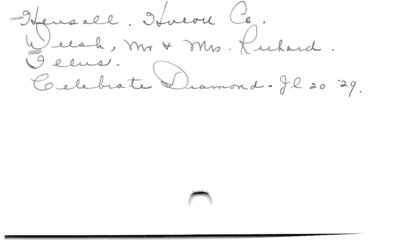 Hensall. Huron Co.
Welsh, Mr & Mrs. Richard.
Illus.
Celebrate Diamond - Jl 20 '29.